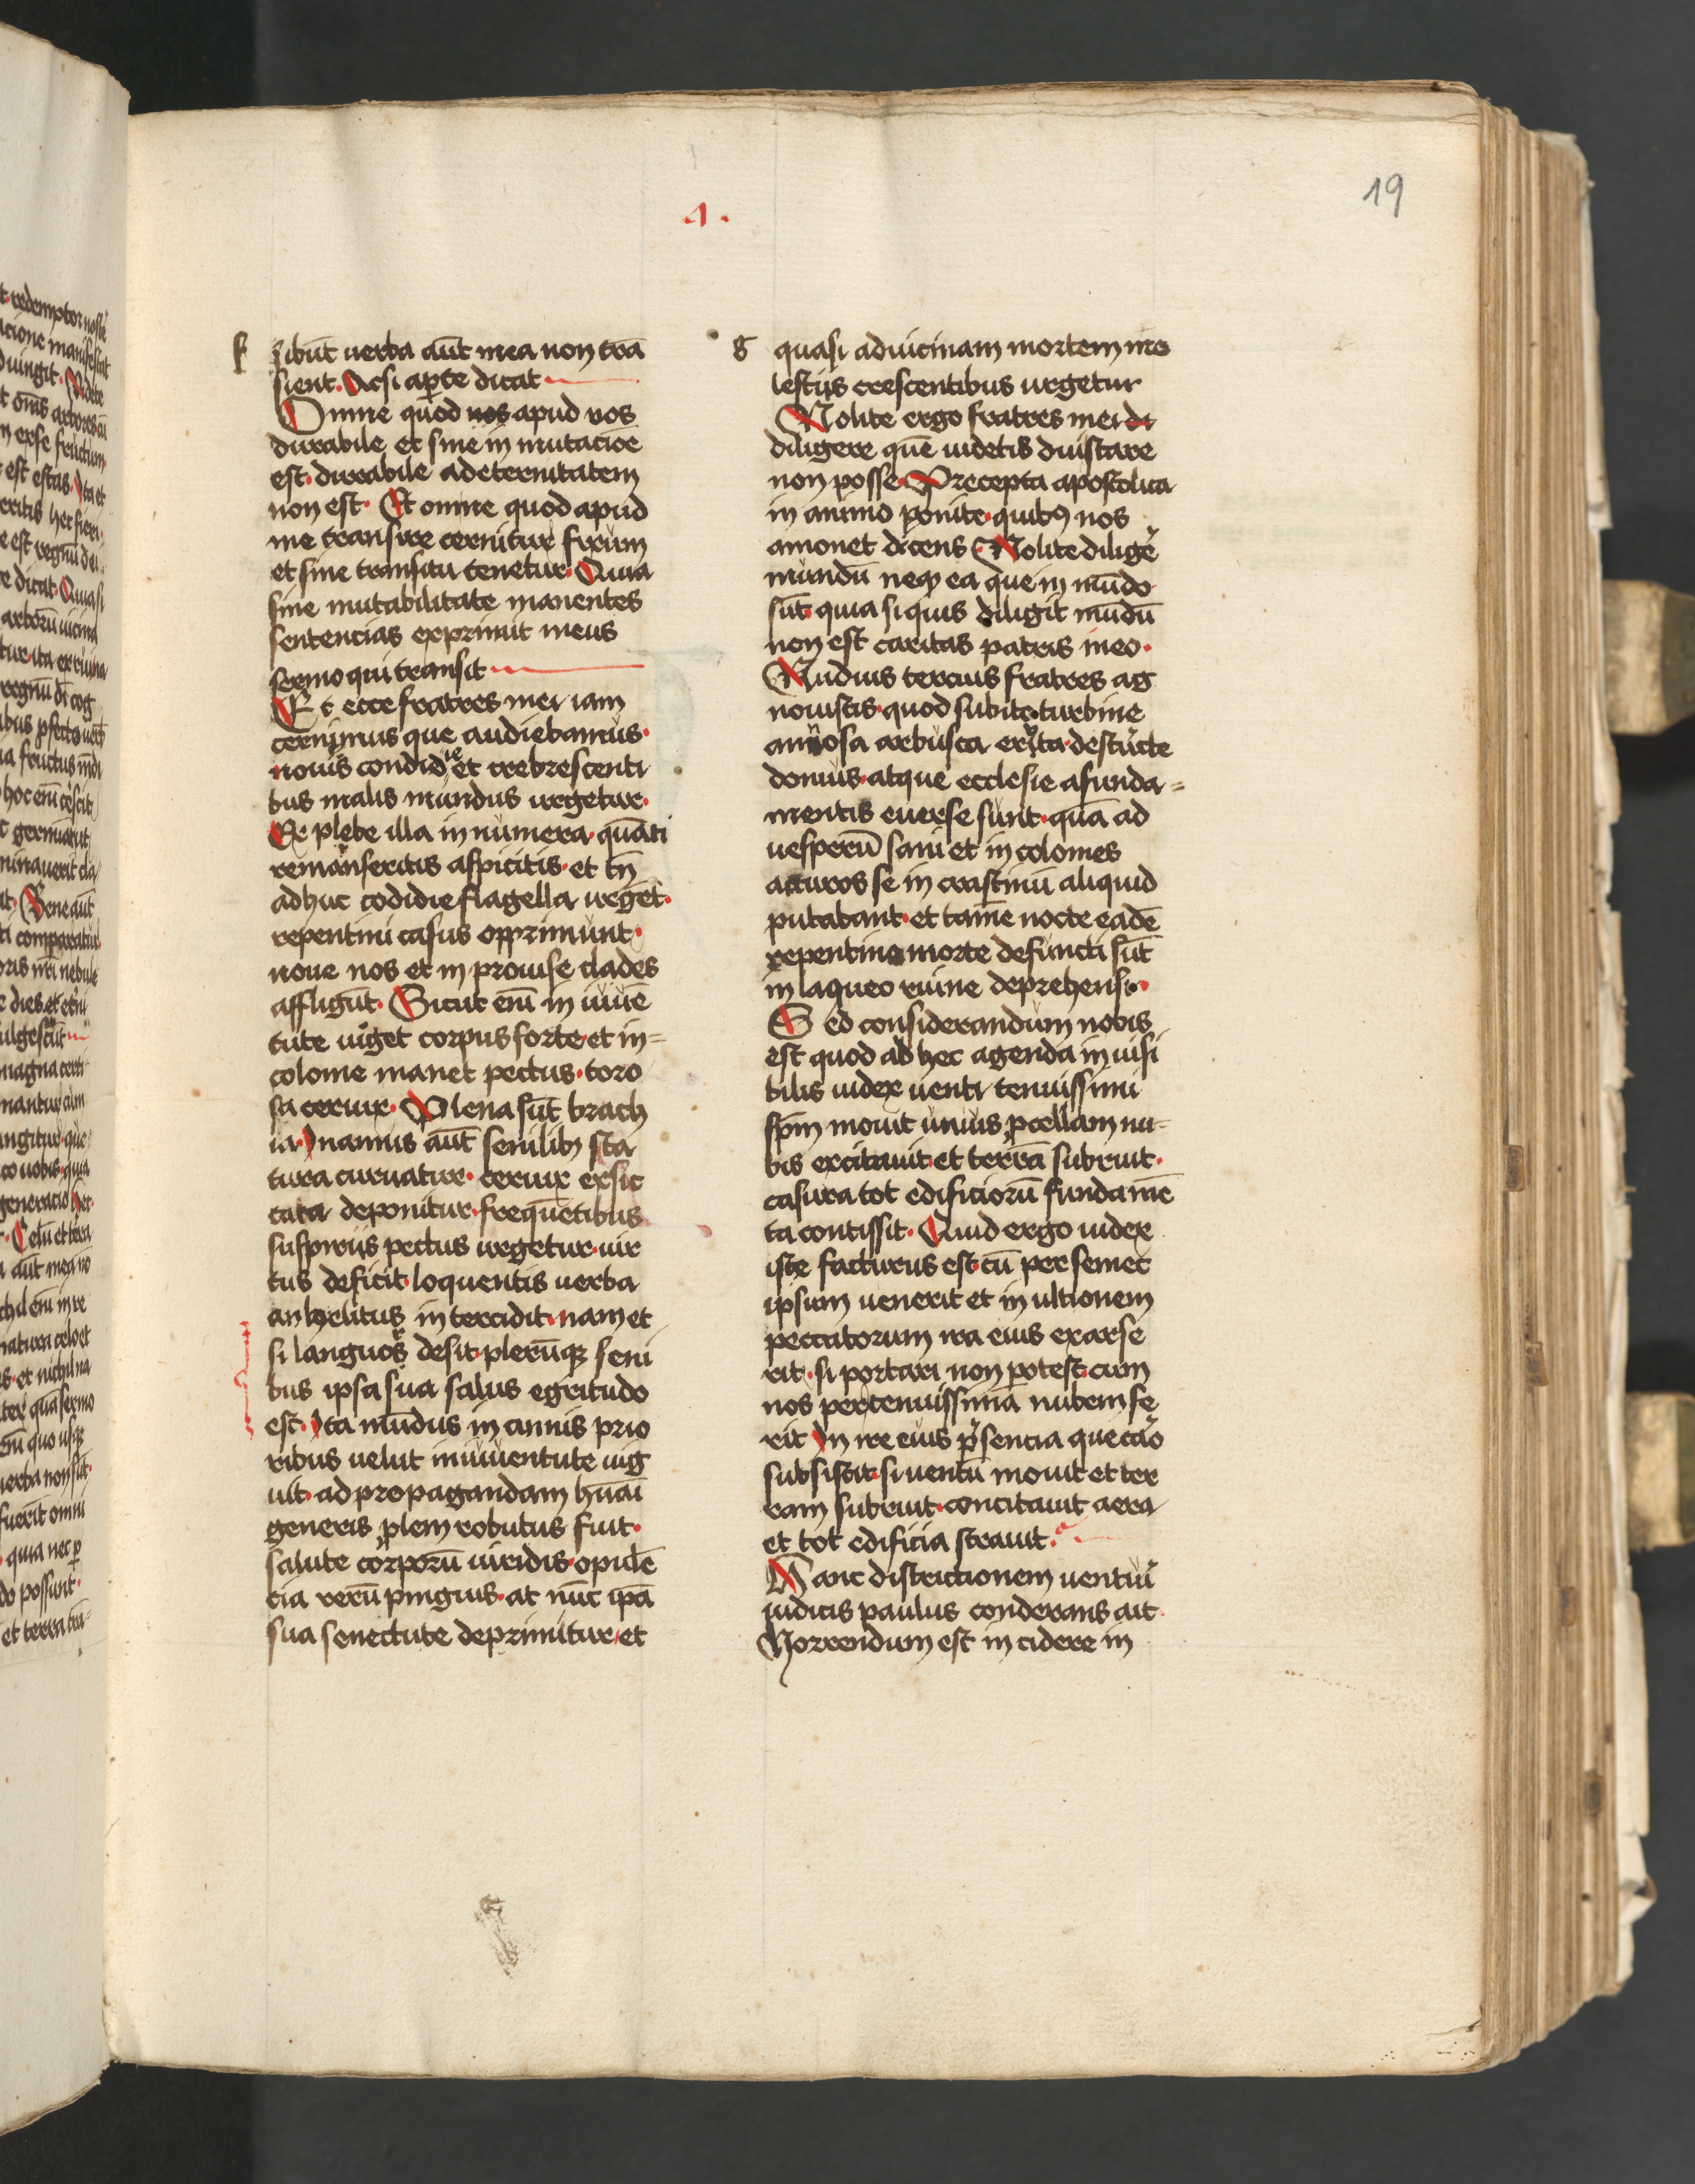 19
1.
f
sibūt uerba aūt mea non trā
sient. Acsi aperte dicat
Omne quod nos apud uos
durabile et sine in mutacioē
est. durabile ad eternitatem
non est. Et omne quod apud
me transire cernitur fixum
et sine transitu tenetur. Quia
sine mutabilitate manentes
sentencias exprimit meus
sermo qui transit
Et ecce fratres mei iam
cernimus que audiebamus.
nouis condidie et crebrescenti
bus malis mundus urgetur.
Ex plebe illa in numera quāti
remanseritis aspicitis. et tn̄
adhuc codidie flagella urgēt.
repentini casus opprimunt.
noue nos et in prouise clades
affligūt. Sicut enī in iuuē
tute uiget corpus forte et in=
colome manet pectus. toro
sa ceruix. Plena sūt brach
ia. In annis aūt senilibꝫ sta
tura curuatur. ceruix exsic
cata deponitur. frequētibus
suspirijs pectus urgetur. uir
tus deficit. loquentis uerba
anhelitus in tercidit. nam et
si languor desit. plerūqꝫ seni
bus ipsa sua salus egritudo
est. Ita mūdus in annis prio
ribus uelut in iuuentute uig
uit. ad propagandam hūāi
generis plem robutus fuit.
salute corporū uiridis. opulē
cia rerū pinguis. at nūc ipā
sua senectute deprimitur. et
g
quasi ad uicinam mortem mo
lestijs crescentibus urgetur
Nolite ergo fratres mei di
diligere quē uidetis diu stare
non posse. Precepta apostolica
in animo ponite. quibꝫ nos
amonet dicens. Nolite diligē
mundū neqꝫ ea que in mūdo
sūt. quia si quis diligit mūdū
non est caritas patris in eo.
Nudius tercius fratres ag
nouistis. quod subito turbine
annosa arbusta eruta. destructe
domus. atque ecclesie a funda=
mentis euerse sunt. quā ad
uesperū sani et in colomes
acturos se in crastinū aliquid
putabant. et tamē nocte eadē
repentina morte defuncti sūt
in laqueo ruine deprehensi.
Sed considerandum nobis
est quod ad hec agenda in uisi
bilis iudex uenti tenuissimi
spm̄ mouit unius ꝓcellam nu=
bis excitauit. et terrā subruit.
casura tot edificiorū fundamē
ta contissit. Quid ergo iudex
iste facturus est. cū per semet
ipsum uenerit et in ultionem
peccatorum ira eius exarse
rit. si portari non potest. cum
nos per tenuissimā nubem fe
rit In ire eius p̄sencia que caō
subsistit. si uentū mouit et ter
ram subruit. concitauit aera
et tot edificia strauit.
Hanc districtionem uenturi
iudicis paulus conderans ait.
Horrendum est in cidere in